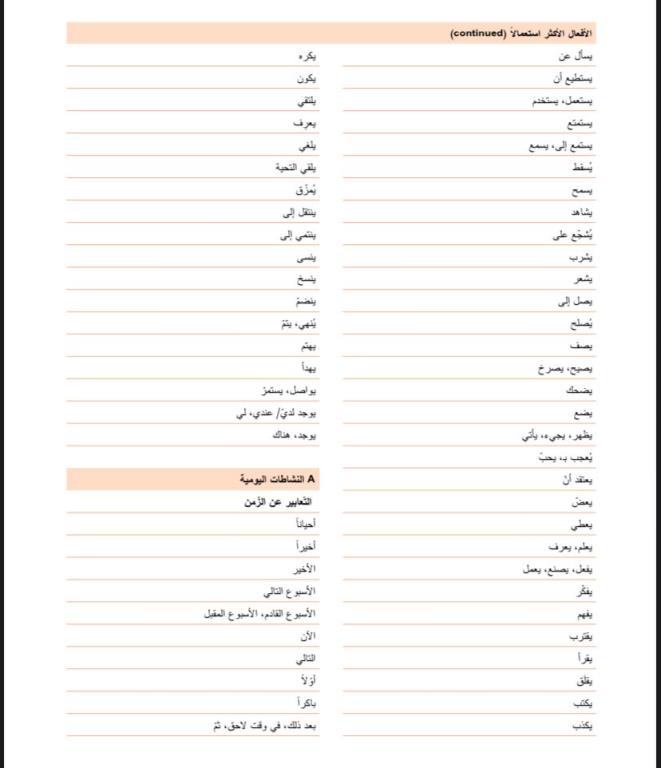 الأفعال الأكثر استعمالاً (continued)
يسأل عن
يستطيع أن
يستعمل، يستخدم
يستمتع
يستمع إلى، يسمع
يُسقط
يسمح
يشاهد
يُشجّع على
يشرب
يشعر
يصل إلى
يُصلح
يصف
يصيح، يصرخ
يضحك
يضع
يظهر، يجيء، يأتي
يُعجب بـ، يحبّ
يعتقد أنّ
يعضّ
يعطي
يعلم، يعرف
يفعل، يصنع، يعمل
يفكّر
يفهم
يقترب
يقرأ
يقلق
يكتب
يكذب
يكره
يكون
يلتقي
يعرف
يلغي
يلقي التحية
يُمزّق
ينتقل إلى
ينتمي إلى
ينسى
ينسخ
ينضمّ
يُنهي، يتمّ
يهتم
يهدأ
يواصل، يستمرّ
يوجد لديّ/ عندي، لي
يوجد، هناك
A النشاطات اليومية
التّعابير عن الزّمن
أحياناً
أخيراً
الأخير
الأسبوع التالي
الأسبوع القادم، الأسبوع المقبل
الآن
التالي
أوّلاً
باكراً
بعد ذلك، في وقت لاحق، ثمّ